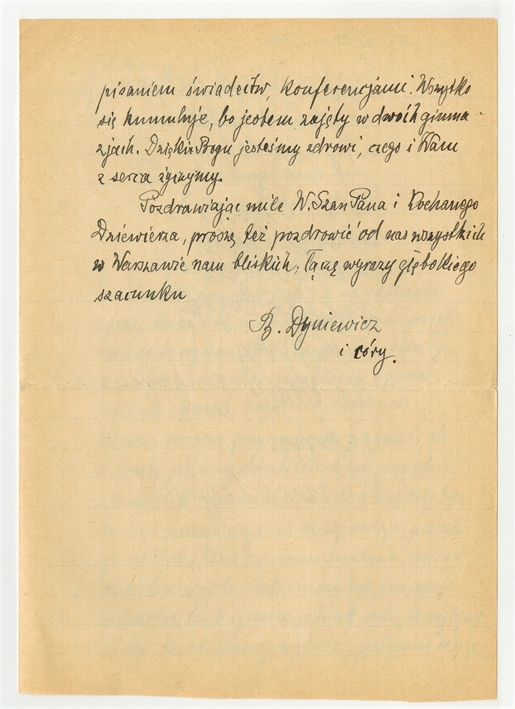 pisaniem świadectw, konferencjami. Wszytko
się kumuluje, bo jestem zajęty w dwóch gimna-
zjach. Dzięki Bogu jesteśmy zdrowi, czego i Wam
z serca życzymy.
Pozdrawiając mile W. Szan Pana i Kochanego
Dziewierza, proszę też pozdrowić od nas wszystkich
w Warszawie nam bliskich; łączę wyrazy głębokiego
szacunku
B. Dyniewicz
i córy.